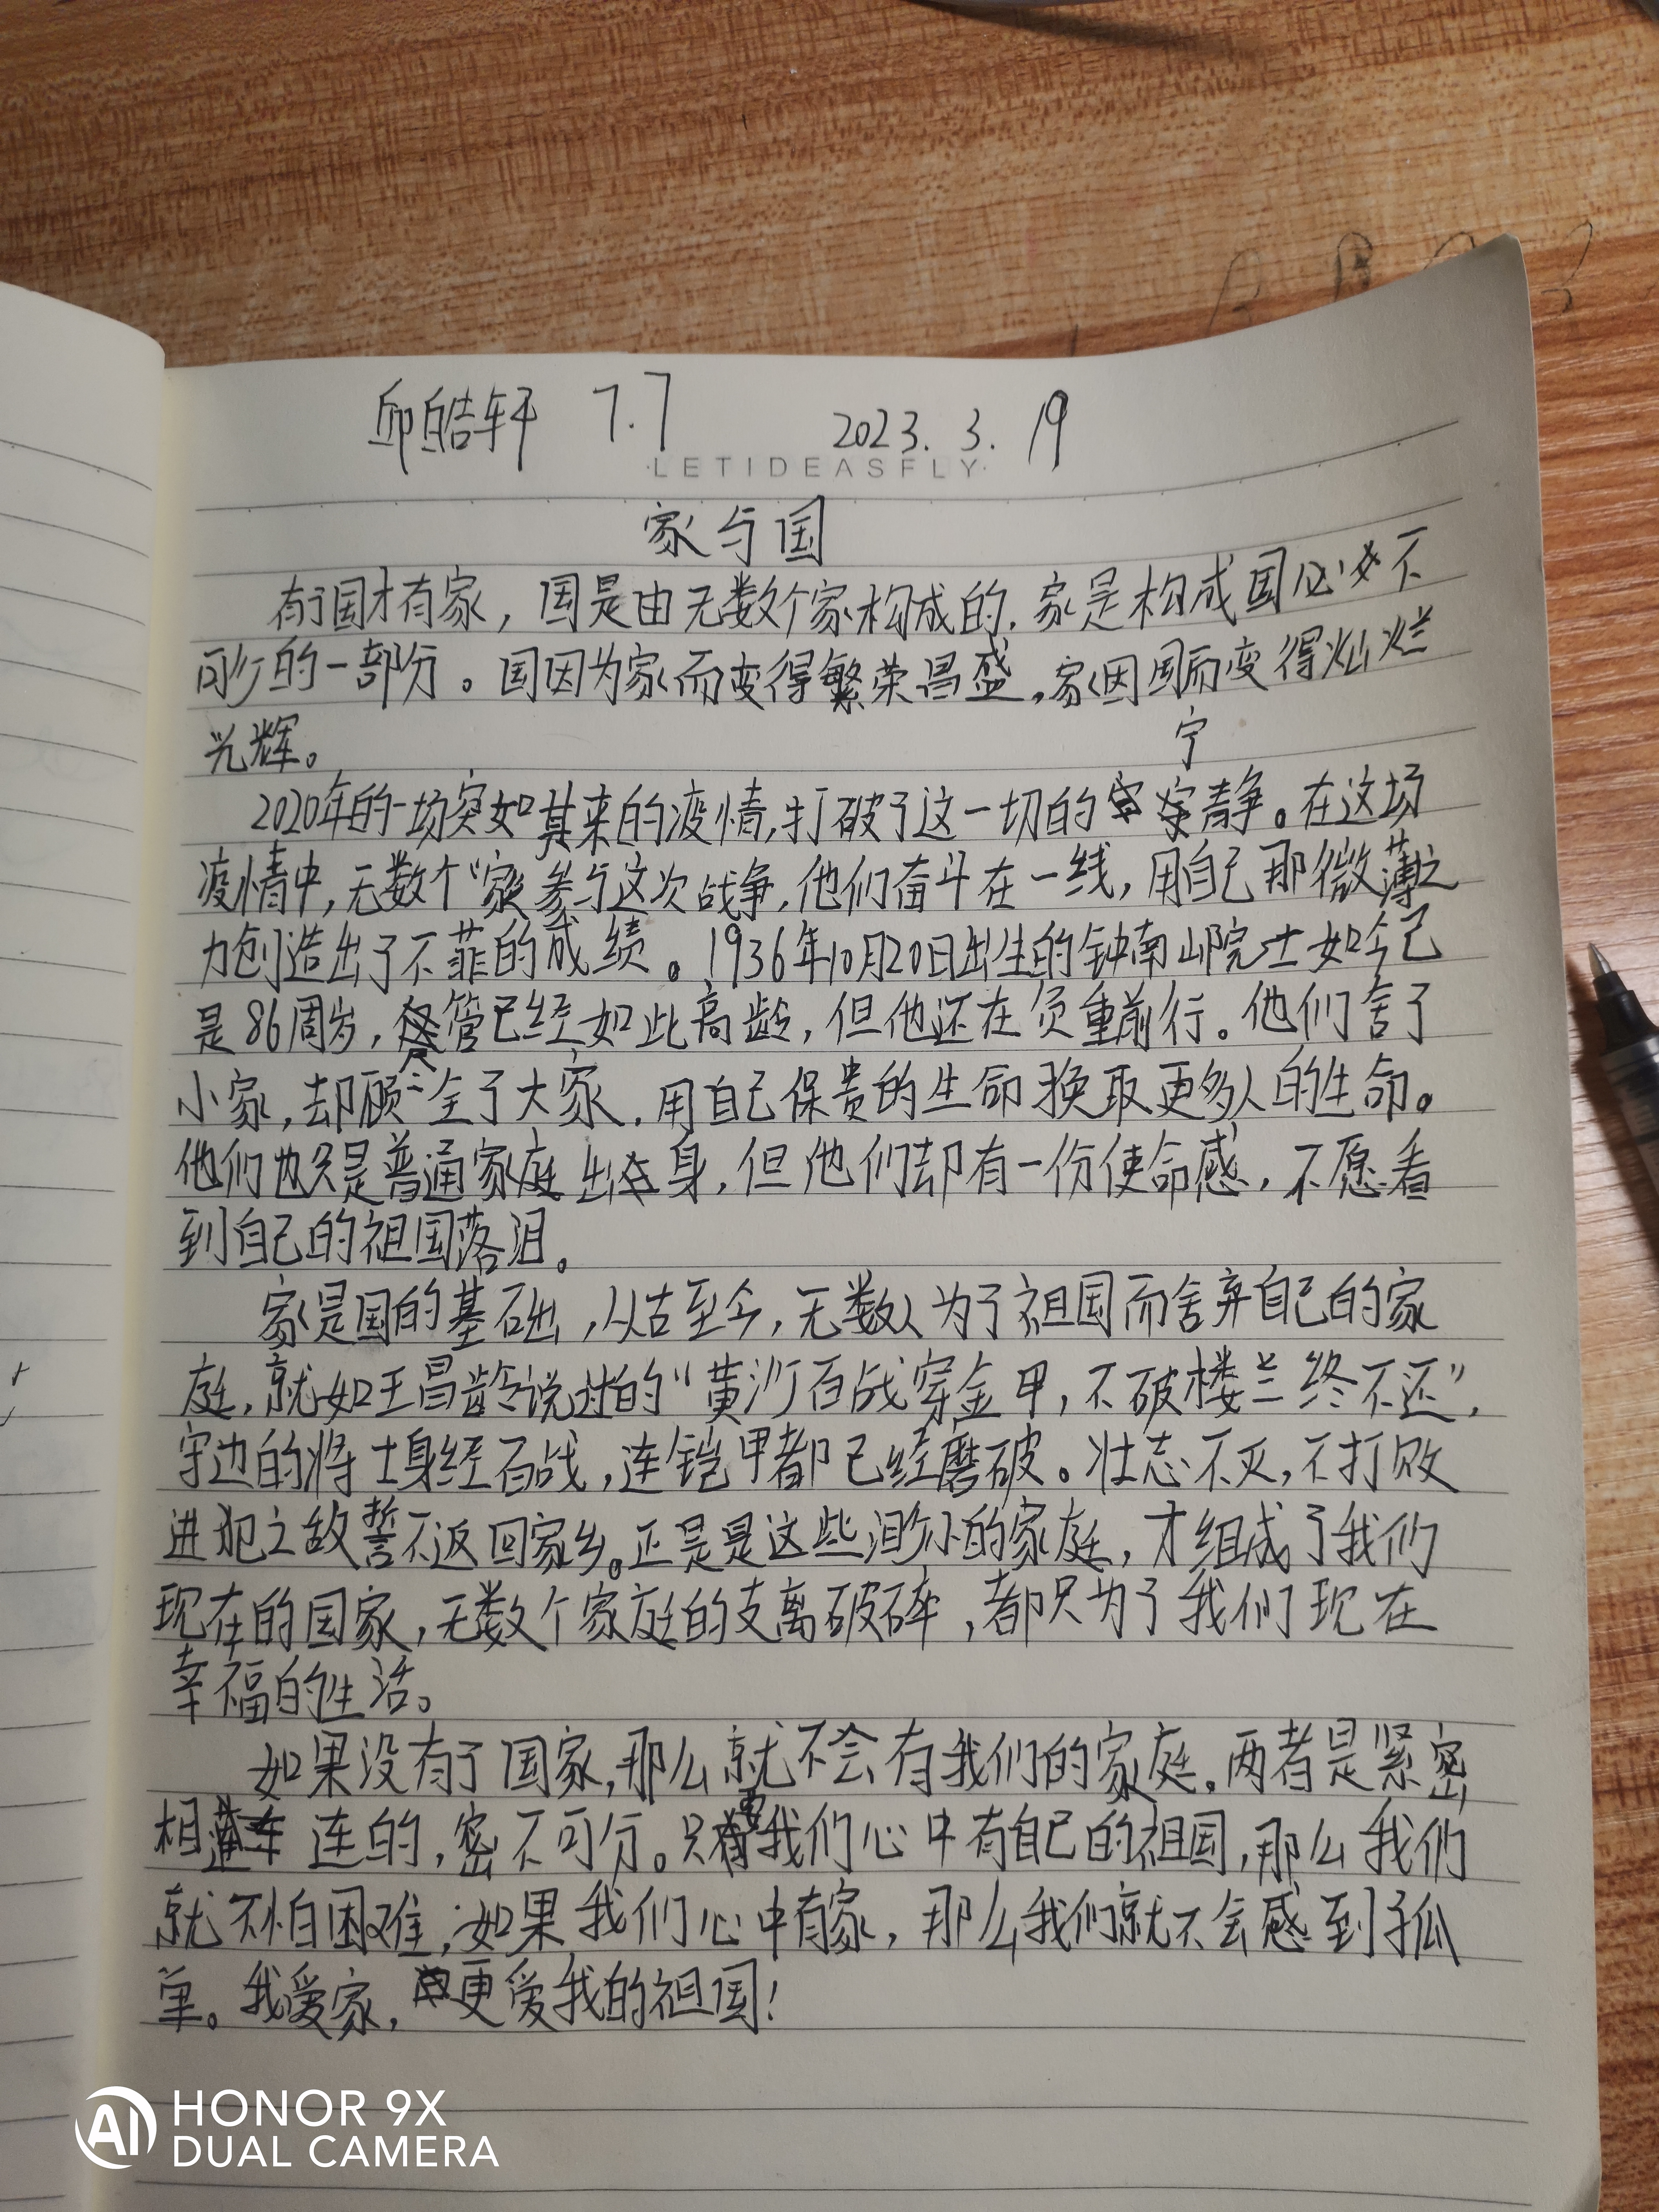 邱皓轩 7.7 2023.3.19
·LETIDEASFLY·
家与国
有了国才有家，国是由无数个家构成的，家是构成国必不
可少的一部分。国因为家而变得繁荣昌盛，家因国而变得灿烂
光辉。
2020年的一场突如其来的疫情，打破了这一切的宁静。在这场
疫情中，无数个“家”参与这次战争，他们奋斗在一线，用自己那微薄之
力创造出了不菲的成绩。1936年10月20日出生的钟南山院士如今已
是86周岁，尽管已经如此高龄，但他还在负重前行。他们舍了
小家，却顾全了大家，用自己保贵的生命换取更多人的生命。
他们也只是普通家庭出身，但他们却有一份使命感，不愿看
到自己的祖国落泪。
家是国的基础，从古至今，无数人为了祖国而舍弃自己的家
庭，就如王昌龄说过的“黄沙百战穿金甲，不破楼兰终不还”，
守边的将士身经百战，连铠甲都已经磨破。壮志不灭，不打败
进犯之敌誓不返回家乡。正是是这些渺小的家庭，才组成了我们
现在的国家，无数个家庭的支离破碎，都只为了我们现在
幸福的生活。
如果没有了国家，那么就不会有我们的家庭，两者是紧密
相连的，密不可分。只要我们心中有自己的祖国，那么我们
就不怕困难；如果我们心中有家，那么我们就不会感到孤
单。我爱家，更爱我的祖国！
AI HONOR 9X
DUAL CAMERA